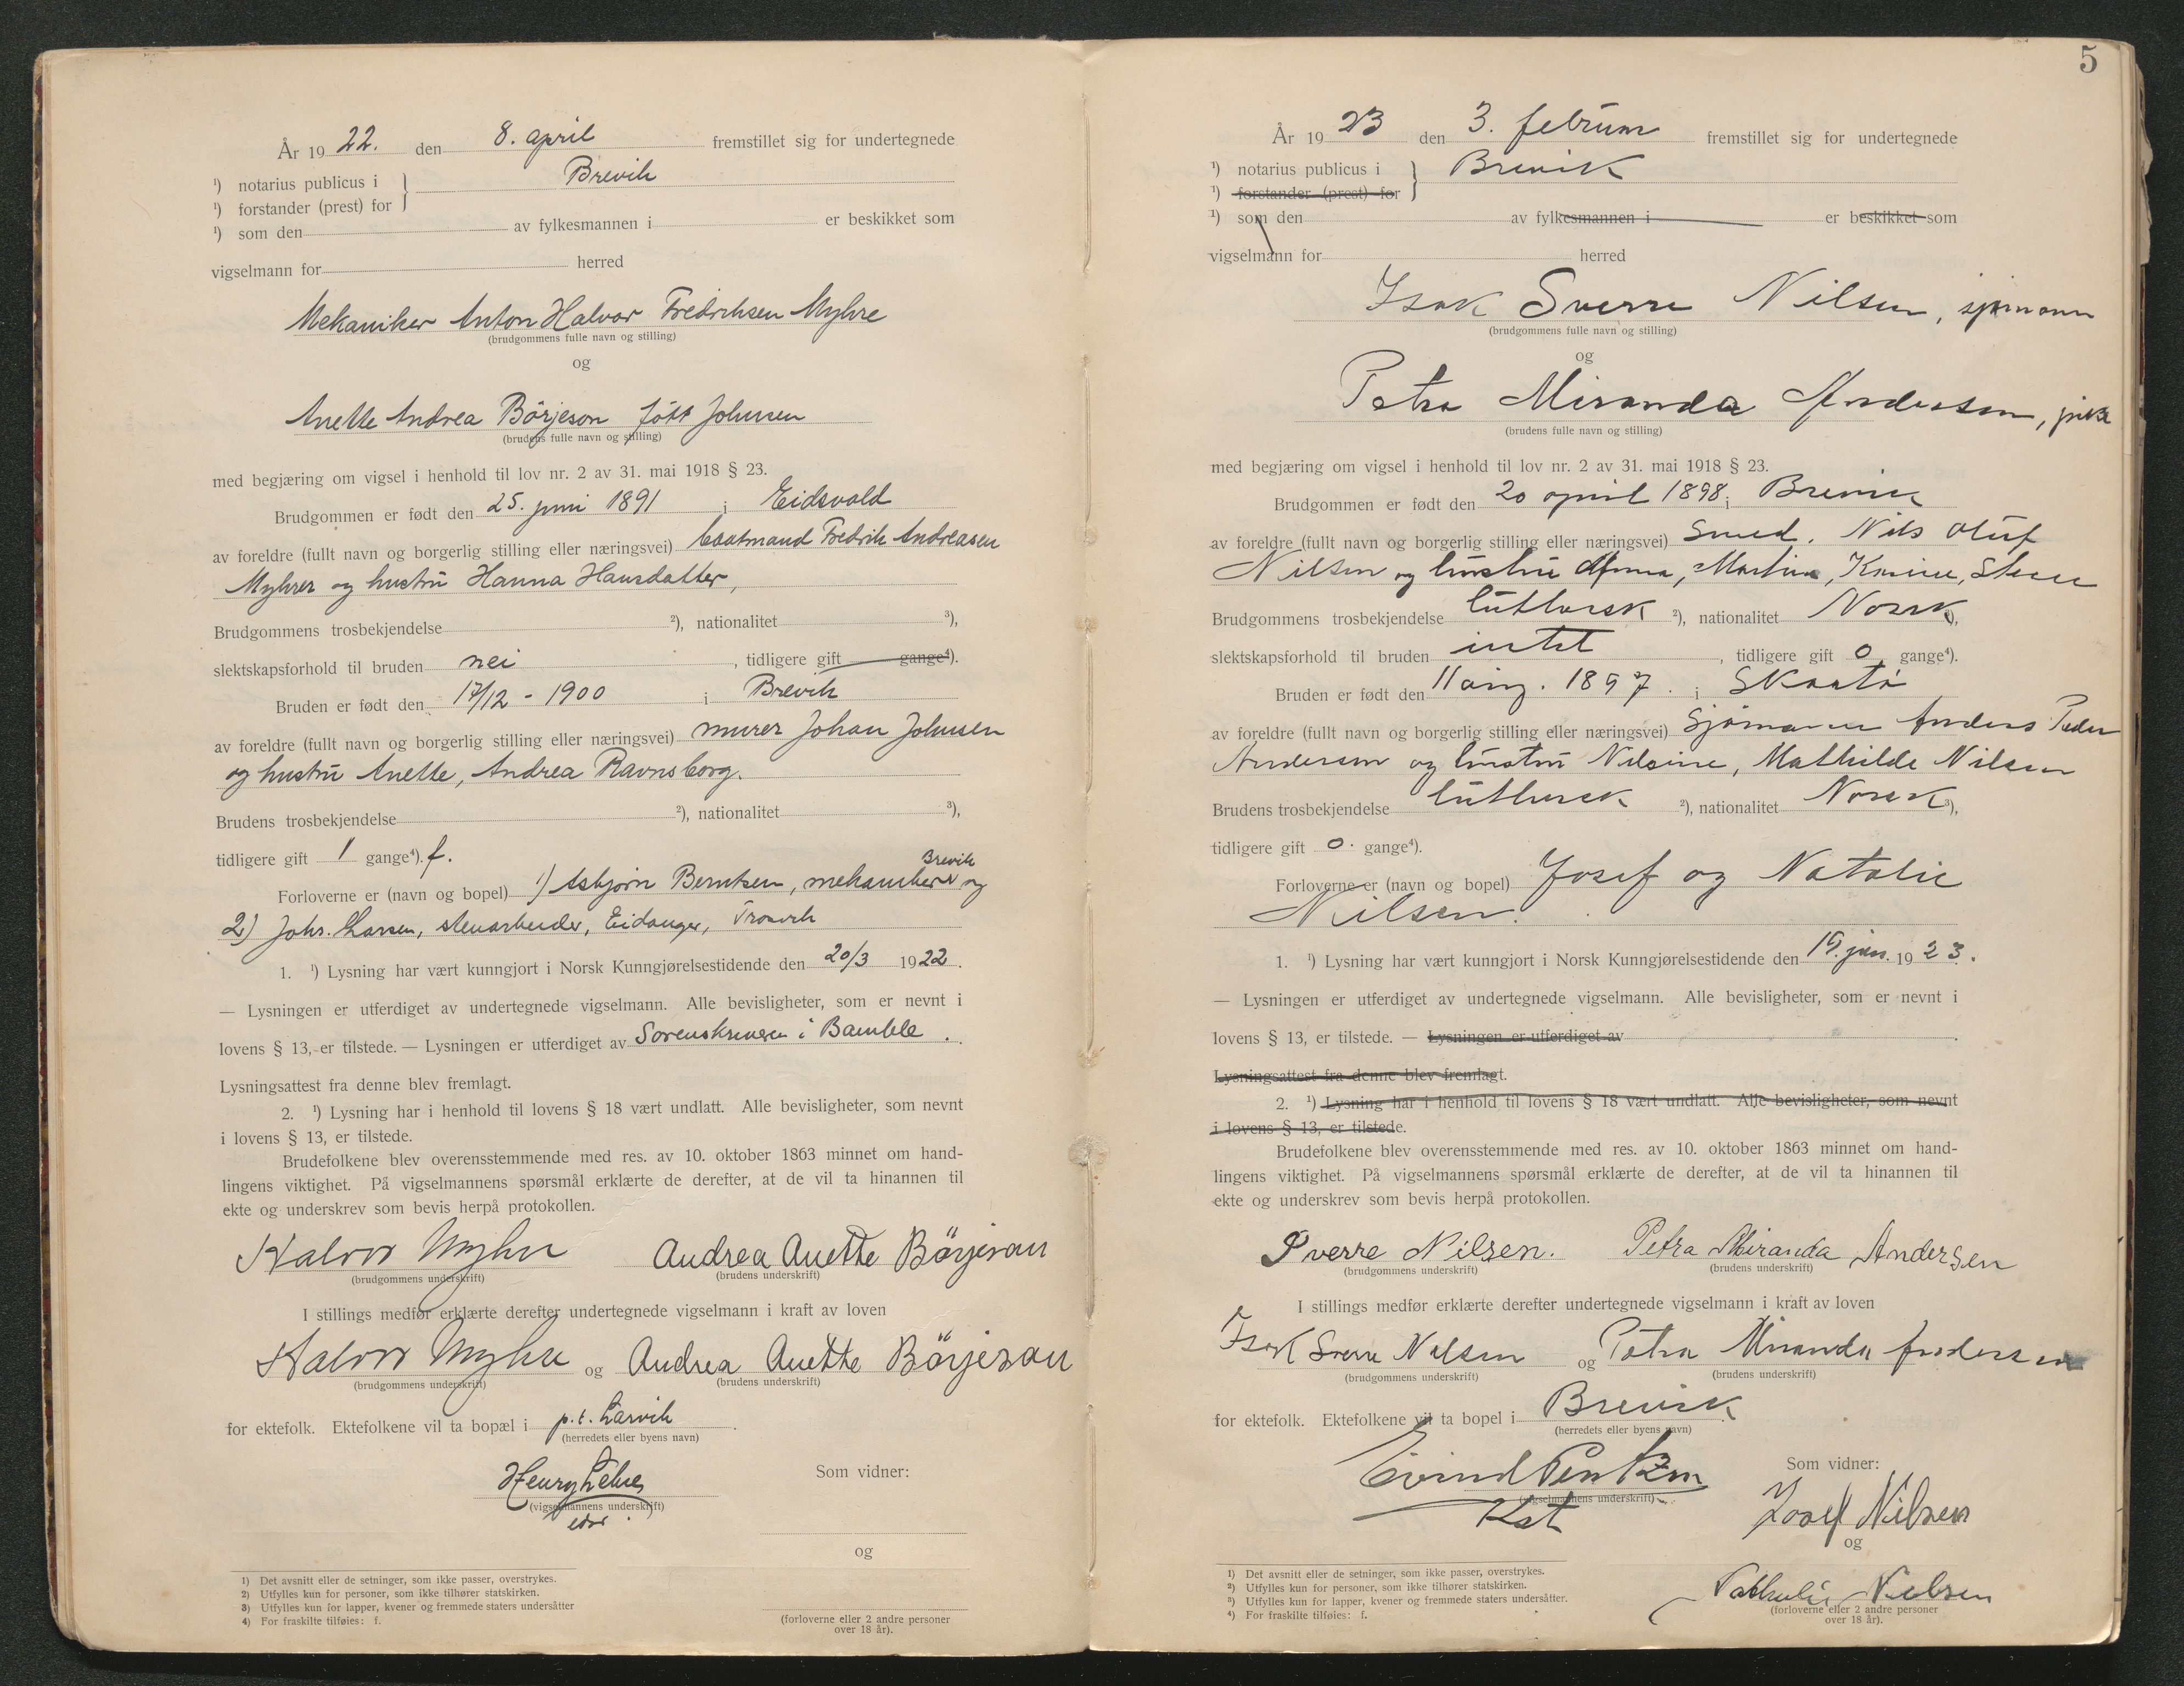 År 1922. den 8. april fremstillet sig for undertegnede
¹) notarius publicus i } Brevik
¹) forstander (prest) for
¹) som den av fylkesmannen i er beskikket som
vigselmann for herred
Mekaniker Anton Halvor Fredriksen Myhre
(brudgommens fulle navn og stilling)
og
Anette Andrea Börjeson født Johnsen
(brudens fulle navn og stilling)
med begjæring om vigsel i henhold til lov nr. 2 av 31. mai 1918 § 23.
Brudgommen er født den 25. juni 1891 i Eidsvold
av foreldre (fullt navn og borgerlig stilling eller næringsvei) baatmand Fredrik Andreasen
Myhrer og hustru Hanna Hansdatter,
Brudgommens trosbekjendelse ²), nationalitet ³),
slektskapsforhold til bruden nei, tidligere gift gange⁴).
Bruden er født den 17/12 - 1900 i Brevik
av foreldre (fullt navn og borgerlig stilling eller næringsvei) murer Johan Johnsen
og hustru Anette, Andrea Ravnsborg.
Brudens trosbekjendelse ²), nationalitet ³),
tidligere gift 1 gange⁴). f.
Brevik
Forloverne er (navn og bopel) 1) Asbjørn Berntsen, mekaniker og
2) Johs. Larsen, stenarbeider, Eidanger, Trosvik
1. ¹) Lysning har vært kunngjort i Norsk Kunngjørelsestidende den 20/3 1922.
— Lysningen er utferdiget av undertegnede vigselmann. Alle bevisligheter, som er nevnt i
lovens § 13, er tilstede. — Lysningen er utferdiget av Sorenskriveren i Bamble.
Lysningsattest fra denne blev fremlagt.
2. ¹) Lysning har i henhold til lovens § 18 vært undlatt. Alle bevisligheter, som nevnt
i lovens § 13, er tilstede.
Brudefolkene blev overensstemmende med res. av 10. oktober 1863 minnet om hand-
lingens viktighet. På vigselmannens spørsmål erklærte de derefter, at de vil ta hinannen til
ekte og underskrev som bevis herpå protokollen.
Halvor Myhre Andrea Anette Börjeson
(brudgommens underskrift) (brudens underskrift)
I stillings medfør erklærte derefter undertegnede vigselmann i kraft av loven
Halvor Myhre og Andrea Anette Börjeson
(brudgommens underskrift) (brudens underskrift)
for ektefolk. Ektefolkene vil ta bopæl i p.t. Larvik.
(herredets eller byens navn)
Henry Lehne
Som vidner:
(vigselmannens underskrift)
og
1) Det avsnitt eller de setninger, som ikke passer, overstrykes.
2) Utfylles kun for personer, som ikke tilhører statskirken.
3) Utfylles kun for lapper, kvener og fremmede staters undersåtter
4) For fraskilte tilføies: f.
(forloverne eller 2 andre personer
over 18 år).
5
År 1923 den 3. februar fremstillet sig for undertegnede
¹) notarius publicus i } Brevik
¹) forstander (prest) for
¹) som den av fylkesmannen i er beskikket som
vigselmann for herred
Isak Sverre Nilsen, sjømann
(brudgommens fulle navn og stilling)
og
Petra Miranda Andersen, pike
(brudens fulle navn og stilling)
med begjæring om vigsel i henhold til lov nr. 2 av 31. mai 1918 § 23.
Brudgommen er født den 20 april 1898 i Brevik
av foreldre (fullt navn og borgerlig stilling eller næringsvei) Smed. Nils Oluf
Nilsen og hustru Anna, Martine, Karine, Stene
Brudgommens trosbekjendelse luthersk ²), nationalitet Norsk ³),
slektskapsforhold til bruden intet, tidligere gift 0 gange⁴).
Bruden er født den 11 aug. 1897. i Skaatø
av foreldre (fullt navn og borgerlig stilling eller næringsvei) Sjømann Anders Peder
Andersen og hustru Nilsine, Mathilde Nilsen
Brudens trosbekjendelse luthersk ²), nationalitet Norsk ³),
tidligere gift 0. gange⁴).
Forloverne er (navn og bopel) Josef og Natalie
Nilsen.
1. ¹) Lysning har vært kunngjort i Norsk Kunngjørelsestidende den 19. jan. 1923.
— Lysningen er utferdiget av undertegnede vigselmann. Alle bevisligheter, som er nevnt i
lovens § 13, er tilstede. — Lysningen er utferdiget av .
Lysningsattest fra denne blev fremlagt.
2. ¹) Lysning har i henhold til lovens § 18 vært undlatt. Alle bevisligheter, som nevnt
i lovens § 13, er tilstede.
Brudefolkene blev overensstemmende med res. av 10. oktober 1863 minnet om hand-
lingens viktighet. På vigselmannens spørsmål erklærte de derefter, at de vil ta hinannen til
ekte og underskrev som bevis herpå protokollen.
Sverre Nilsen. Petra Miranda Andersen
(brudgommens underskrift) (brudens underskrift)
I stillings medfør erklærte derefter undertegnede vigselmann i kraft av loven
Isak Sverre Nilsen og Petra Miranda Andersen
(brudgommens underskrift) (brudens underskrift)
for ektefolk. Ektefolkene vil ta bopel i Brevik
(herredets eller byens navn)
Eivind
Som vidner:
(vigselmannens underskrift)
Kst
Josef Nilsen
og
Nathalie Nilsen
1) Det avsnitt eller de setninger, som ikke passer, overstrykes.
2) Utfylles kun for personer, som ikke tilhører statskirken.
3) Utfylles kun for lapper, kvener og fremmede staters undersåtter.
4) For fraskilte tilføies: f.
(forloverne eller 2 andre personer
over 18 år).